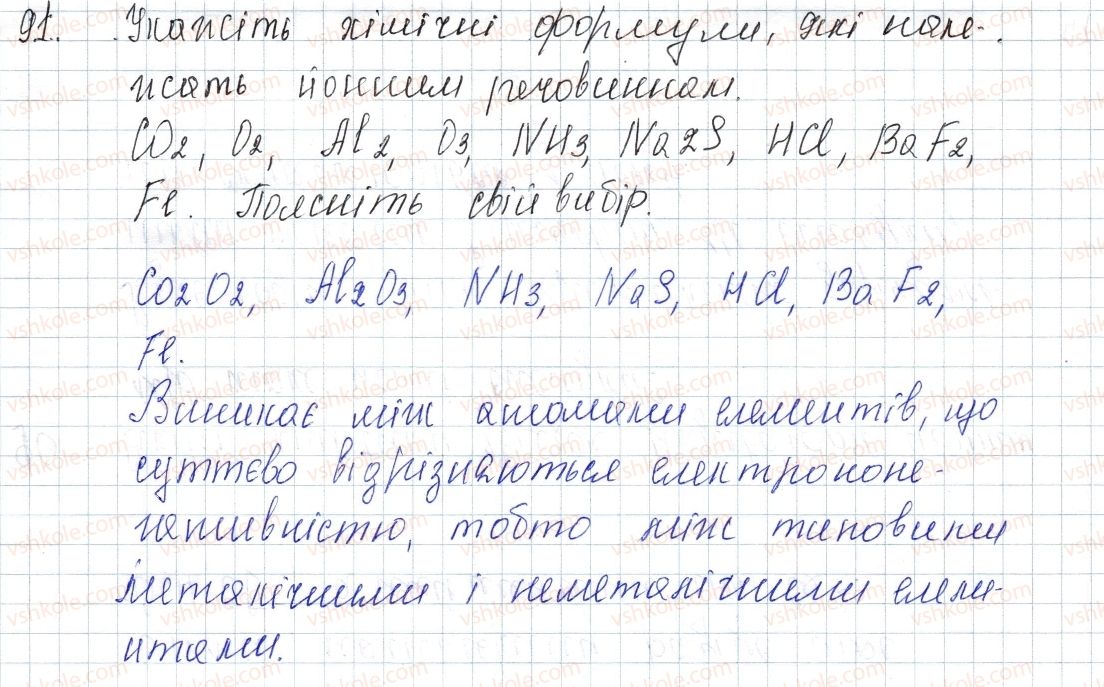 91. Укажіть хімічні формули, які нале-
жать йонним речовинам.
CO2, O2, Al2, O3, NH3, Na2S, HCl, BaF2,
Fe. Поясніть свій вибір.
CO2O2, Al2O3, NH3, NaS, HCl, BaF2,
Fe.
Виникає між атомами елементів, що
суттєво відрізняються електроне-
гативністю, тобто між типовими
металічними і неметалічними елеме-
нтами.